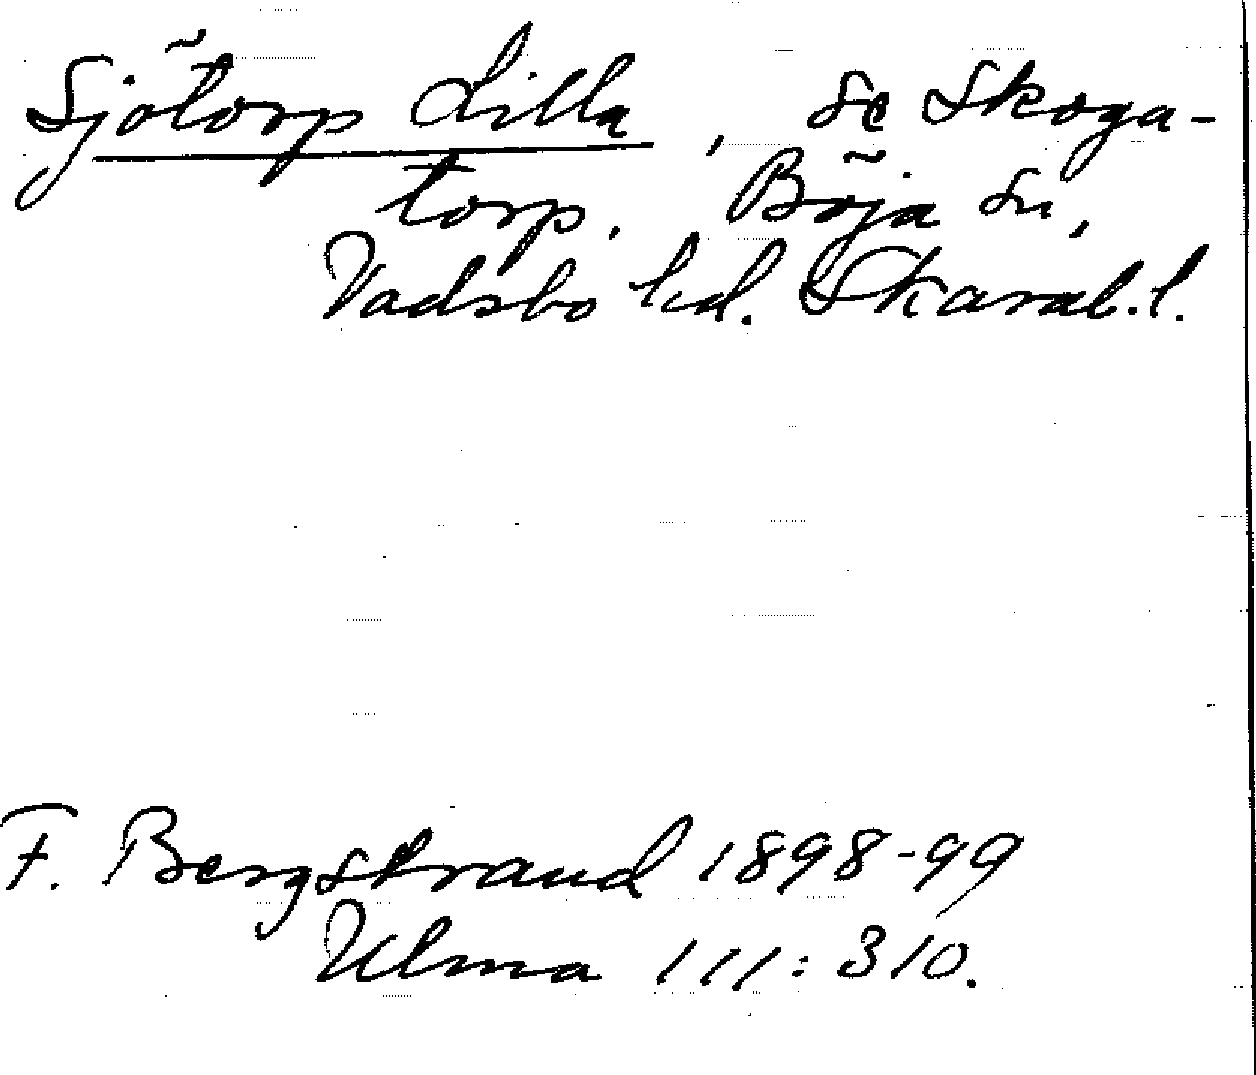 Sjötorp Lilla, se Skoga-
torp, Böja sn,
Vadsbo hd. Skarab.l.
F. Bergstrand 1898-99
Ulma 111:310.